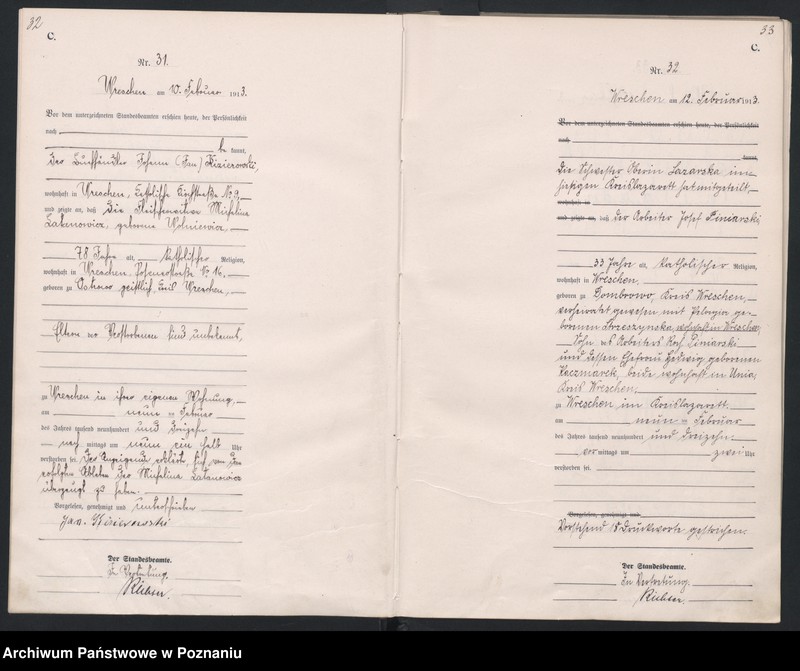 32
C.
Nr. 31.
Wreschen am 10. Februar 1913.
Vor dem unterzeichneten Standesbeamten erschien heute, der Persönlichkeit
nach
be kannt,
der Johann (Jan) Kizierowski,
wohnhaft in Wreschen, Katholische Kirchstraße № 9,
und zeigte an, daß die Michalina
Latanowicz, geborene Wolniewicz,
78 Jahre alt, katholischer Religion,
wohnhaft in Wreschen, Posenerstraße № 16,
geboren zu Ostrowo geistlich, Kreis Wreschen,
Eltern der Verstorbenen sind unbekannt,
zu Wreschen in ihrer eigenen Wohnung,
am neun ten Februar
des Jahres tausend neunhundert und dreizehn
nach mittags um neun ein halb Uhr
verstorben sei. Der Anzeigende erklärte, sich von dem
erfolgten Ableben der Michalina Latanowicz
überzeugt zu haben.
Vorgelesen, genehmigt und unterschrieben
Jan. Kizierowski
Der Standesbeamte.
In Vertretung.
33
C.
Nr. 32
Wreschen am 12. Februar 1913.
Vor dem unterzeichneten Standesbeamten erschien heute, der Persönlichkeit
nach
kannt,
Die Schwester Oberin Lazarska im
hiesigen Kreislazarett hat mitgeteilt,
wohnhaft in
und zeigte an, daß der Arbeiter Josef Piniarski,
33 Jahre alt, katholischer Religion,
wohnhaft in Wreschen,
geboren zu Dombrowo, Kreis Wreschen,
verheiratet gewesen mit Pelagia ge-
borenen wohnhaft in Wreschen,
Sohn des Arbeiters Piniarski
und dessen Ehefrau Hedwig geborenen
Kaczmarek, beide wohnhaft in Unia,
Kreis Wreschen,
zu Wreschen im Kreislazarett
am neun ten Februar
des Jahres tausend neunhundert und dreizehn
vor mittags um zwei Uhr
verstorben sei.
Vorgelesen, genehmigt und
Vorstehend 18 Druckworte gestrichen.
Der Standesbeamte.
In Vertretung.
Archiwum Państwowe w Poznaniu